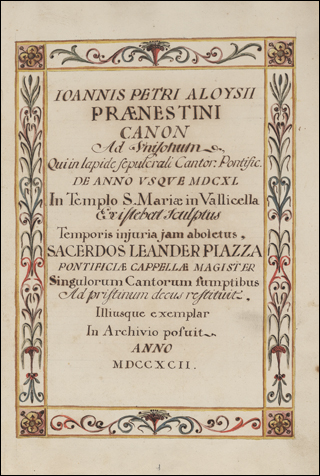 IOANNIS PETRI ALOYSII
PRÆNESTINI
CANON
Ad Vnisonum
Qui in lapide sepulcrali Cantor: Pontific.
DE ANNO VSQVE MDCXL
In Templo S. Mariæ in Vallicella
Existebat Sculptus
Temporis injuria jam aboletus,
SACERDOS LEANDER PIAZZA
PONTIFICIÆ CAPPELLÆ MAGISTER
Singulorum Cantorum sumptibus
Ad pristinum decus restituit,
Illiusque exemplar
In Archivio posuit
ANNO
MDCCXCII.